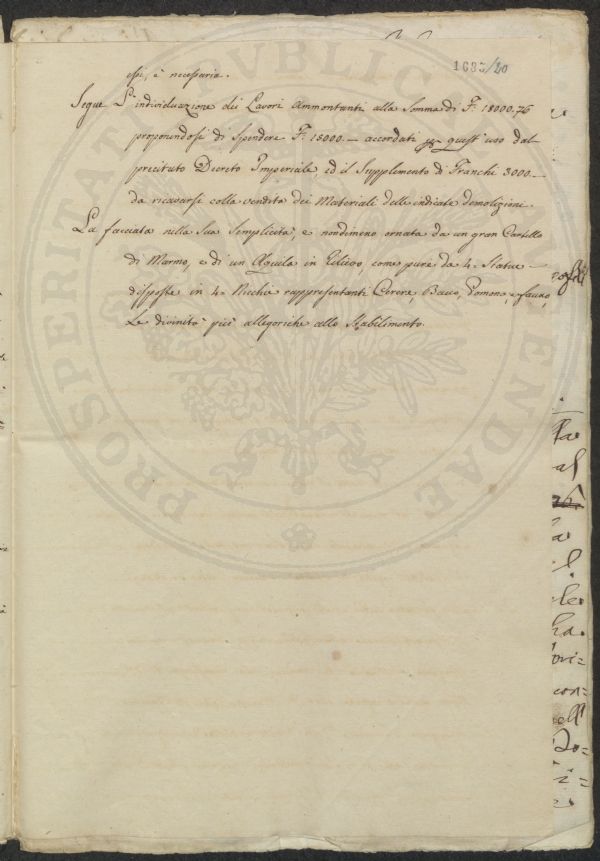 1683/20
essi, è necessaria.
Segue L'individuazione dei Lavori Ammontanti alla Somma di F. 18000.76
proponendosi di Spendere F. 15000.— accordati per quest'uso dal
precitato Decreto Imperiale, ed il Supplemento di Franchi 3000.—
da ricavarsi colla vendita dei Materiali delle indicate demolizione.
La facciata nella Sua Semplicità, e nondimeno ornata da un gran Cartello
di Marmo, e di un Aquila in Rilievo, come pure da 4. Statue —
disposte in 4. Nicchi rappresentanti Cerere, Bacco, Pomona, e fauno,
Le divinità più allegoriche allo Stabilimento.
PROSPERITATI PUBLICAE AUGENDAE